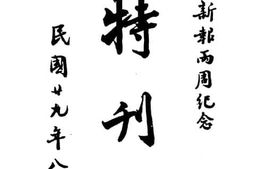 新報兩周紀念
特刊
民國廿九年八